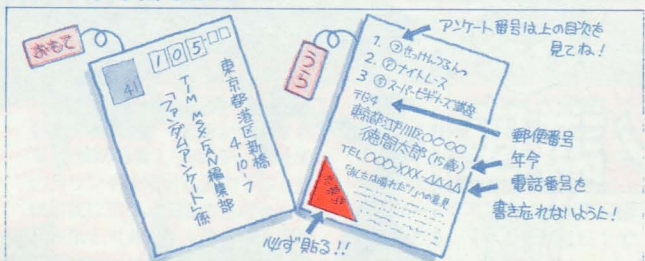 おもて
105
41
東京都港区新橋
4-10-7
TIM MSX・FAN編集部
「ファンダムアンケート」係
うら
アンケート番号は上の目次を
見てね!
1. ③せっけんつるんっ
2. ⑦ナイトレース
3 ⑤スーパービギナーズ講座
〒134
東京都江戸川区○○○○
徳間太郎(15歳)
TEL000-XXX-△△△△
郵便番号
年令
電話番号を
書き忘れないように!
必ず貼る!!